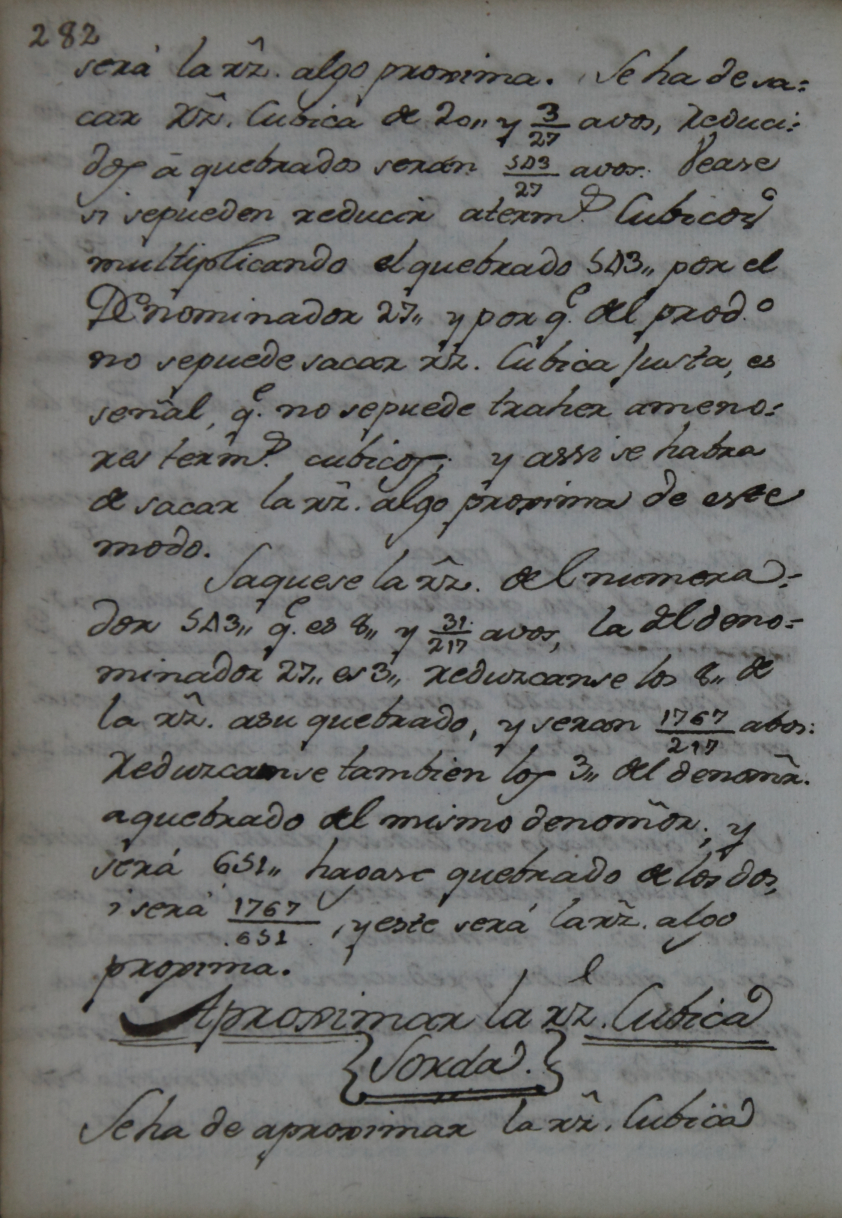 282
será la rz̃. algo proxima. Se ha de sa=
car Rz̃. Cubica de 20,, y 3/27 avos, Reduci=
dos à quebrados seran 543/27 avos. Vease
si sepueden reducir aterm.s Cubicos
multiplicando el quebrado 543,, por el
Denominador 27,, y por q.e del prod.o
no sepuede sacar rz̃. Cubica justa, es
señal, q.e no sepuede traher ameno=
res term.s cubicos; y assi se habra
de sacar la rz̃. algo proxima de este
modo.
Saquese la rz̃. del numera=
dor 543,, q.e es 8,, y 31/217 avos, la del deno=
minador 27,, es 3,, Reduzcanse los 8,, de
la rz̃. asu quebrado, y seran 1767/217 abos:
Reduzcanse tambien los 3,, del denom̃r.
aquebrado del mismo denom̃or, y
será 651,, hagase quebrado de los dos,
i será 1767/651, y este será la rz̃. algo
proxima.
Aproximar la rz̃. Cubica
{Sorda.}
Se ha de aproximar la rz̃. Cubica